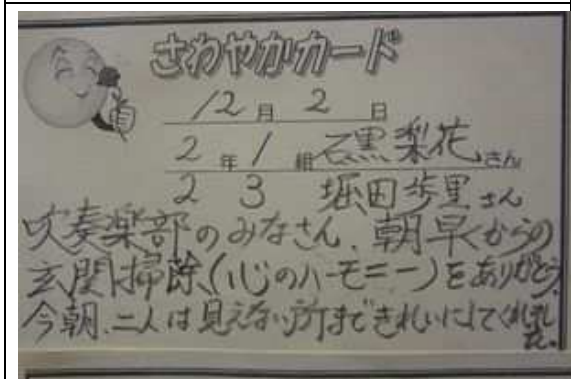 さわやかカード
12月2日
2年1組 石黒梨花さん
2 3 堀田歩里さん
吹奏楽部のみなさん、朝早くからの
玄関掃除(心のハーモニー)をありがとう。
今朝、二人は見えない所まできれいにしてくれまし
た。